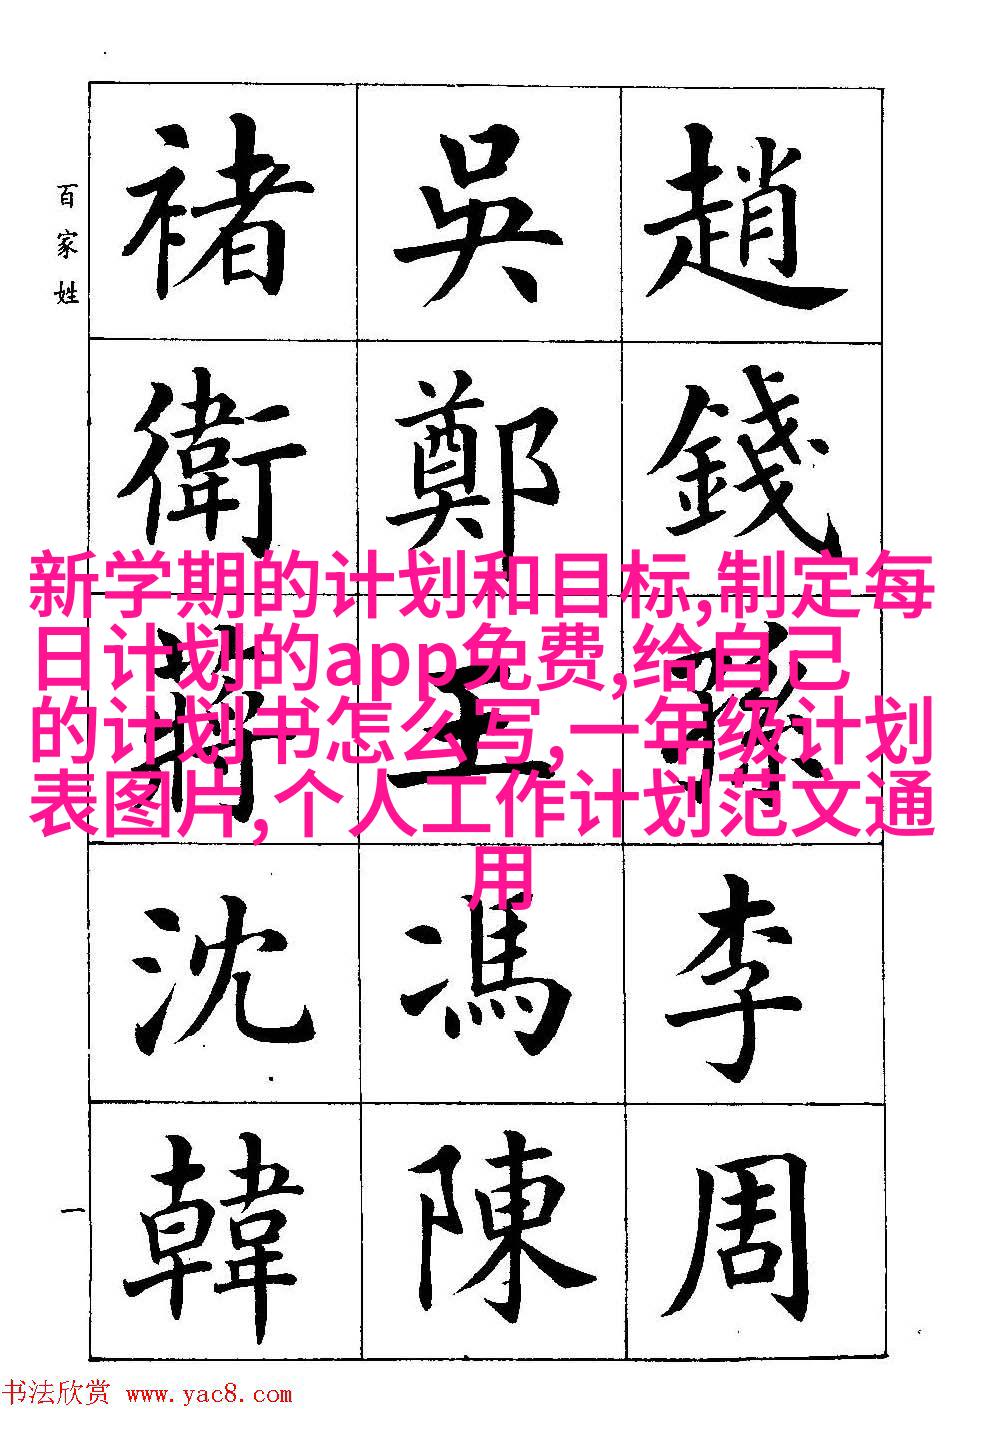 百家姓
趙錢孫李周
吳鄭王馮陳
褚衛蔣沈韓
一
新学期的计划和目标,制定每
日计划的app免费,给自己
的计划书怎么写,一年级计划
表图片,个人工作计划范文通
用
书法欣赏 www.yac8.com